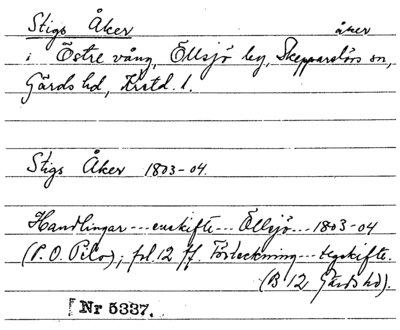 Stigs Åker åker
i Östre vång, Öllsjö by, Skepparslövs sn,
Gärds hd, Krstd. l.
Stigs Åker 1803-04.
Handlingar --- enskifte --- Öllsjö --- 1803-04
(P. O. Pilo); fol. 12 ff. Förteckning --- tegskifte.
(B 12, Gärds hd).
Nr 5337.